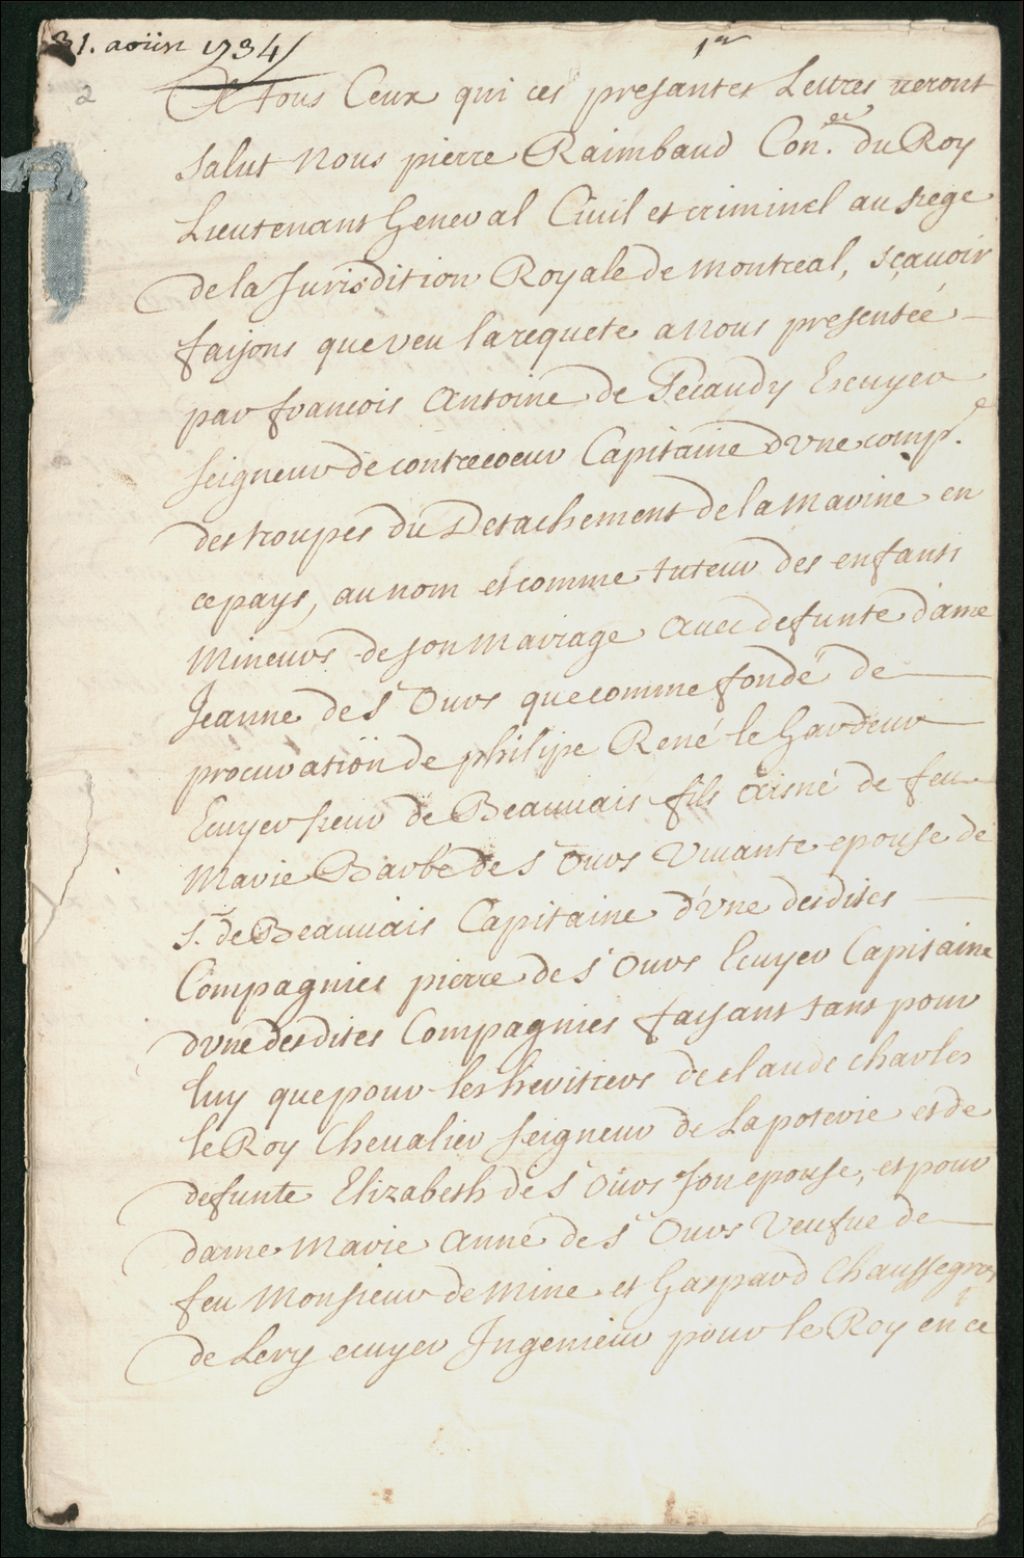 31. aoüst 1734/
1er
2
A tous Ceux qui ces presantes Lettres veront
salut Nous pierre Raimbaud Con.er du Roy
Lieutenant General Ciuil et criminel au siege
de la Jurisdition Royale de montreal, sçauoir
faisons que veu la requete a nous presenteé
par francois Antoine de Pecaudy Escuyer
seigneur de contrecoeur Capitaine d'Vne comp.e
des troupes du Detachement de la Marine en
ce pays, au nom et comme tuteur des enfants
Mineurs de son Mariage Auec defunte dame
Jeanne de St Ours que comme fondé de
procuration de philipe René le Gardeur
Ecuyer sieur de Beauuais fils aisné de feu
Marie Barbe de St Ours Viuante epouse de
Sr. de Beauuais Capitaine d'Vne desdites
Compagnies pierre de St Ours Ecuyer Capitaine
d'vne desdites Compagnies faisant tant pour
luy que pour les heritiers de claude charles
le Roy Cheualier seigneur de La poterie et de
defunte Elizabeth de St Ours son epouse, et pour
dame Marie Anne de St Ours Veufue de
feu Monsieur de Mine et Gaspard Chaussegros
de Lery ecuyer Ingenieur pour le Roy en ce